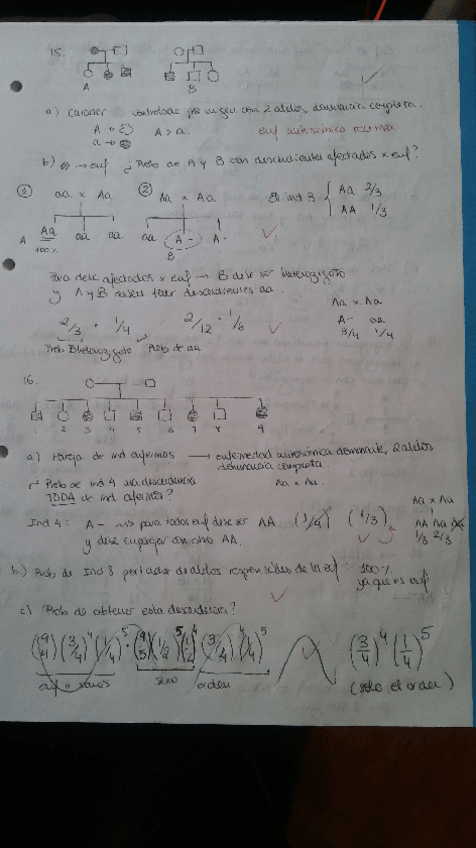 15.
A B
a) Carácter controlado por un gen con 2 alelos, dominancia completa.
A → ○ A > a.
a → enf autosómica recesiva
b) → enf ¿Prob de A y B con descendientes afectados x enf?
① aa x Aa ② Aa x Aa El ind B { Aa 2/3
AA 1/3
A Aa aa aa aa A- A-
100% B
Para desc afectados x enf → B debe ser heterozigoto
y A y B deben tener descendientes aa.
Aa x Aa
2/3 · 1/4 2/12 = 1/6 A- aa
3/4 1/4
Prob B heterozigoto Prob de aa
16.
1 2 3 4 5 6 7 8 9
a) Pareja de ind enfermos → enfermedad autosómica dominante, 2 alelos
dominancia completa.
¿Prob de ind 4 una descendencia Aa x Aa
TODA de ind. enfermos?
Aa x Aa
Ind 4: A- → para todos enf debe ser AA (3/4) (1/3) AA Aa aa
y debe AA. 1/3 2/3
b) Prob de Ind 8 portador de alelos responsables de la enf: 100%
ya que es enf
c) Prob de obtener esta descendencia?
(9 4) (3/4)^4 (1/4)^5 · (9 5) (1/2)^5 (1/2)^4 (3/4)^4 (1/4)^5 (3/4)^4 (1/4)^5
sexo orden (solo el orden)